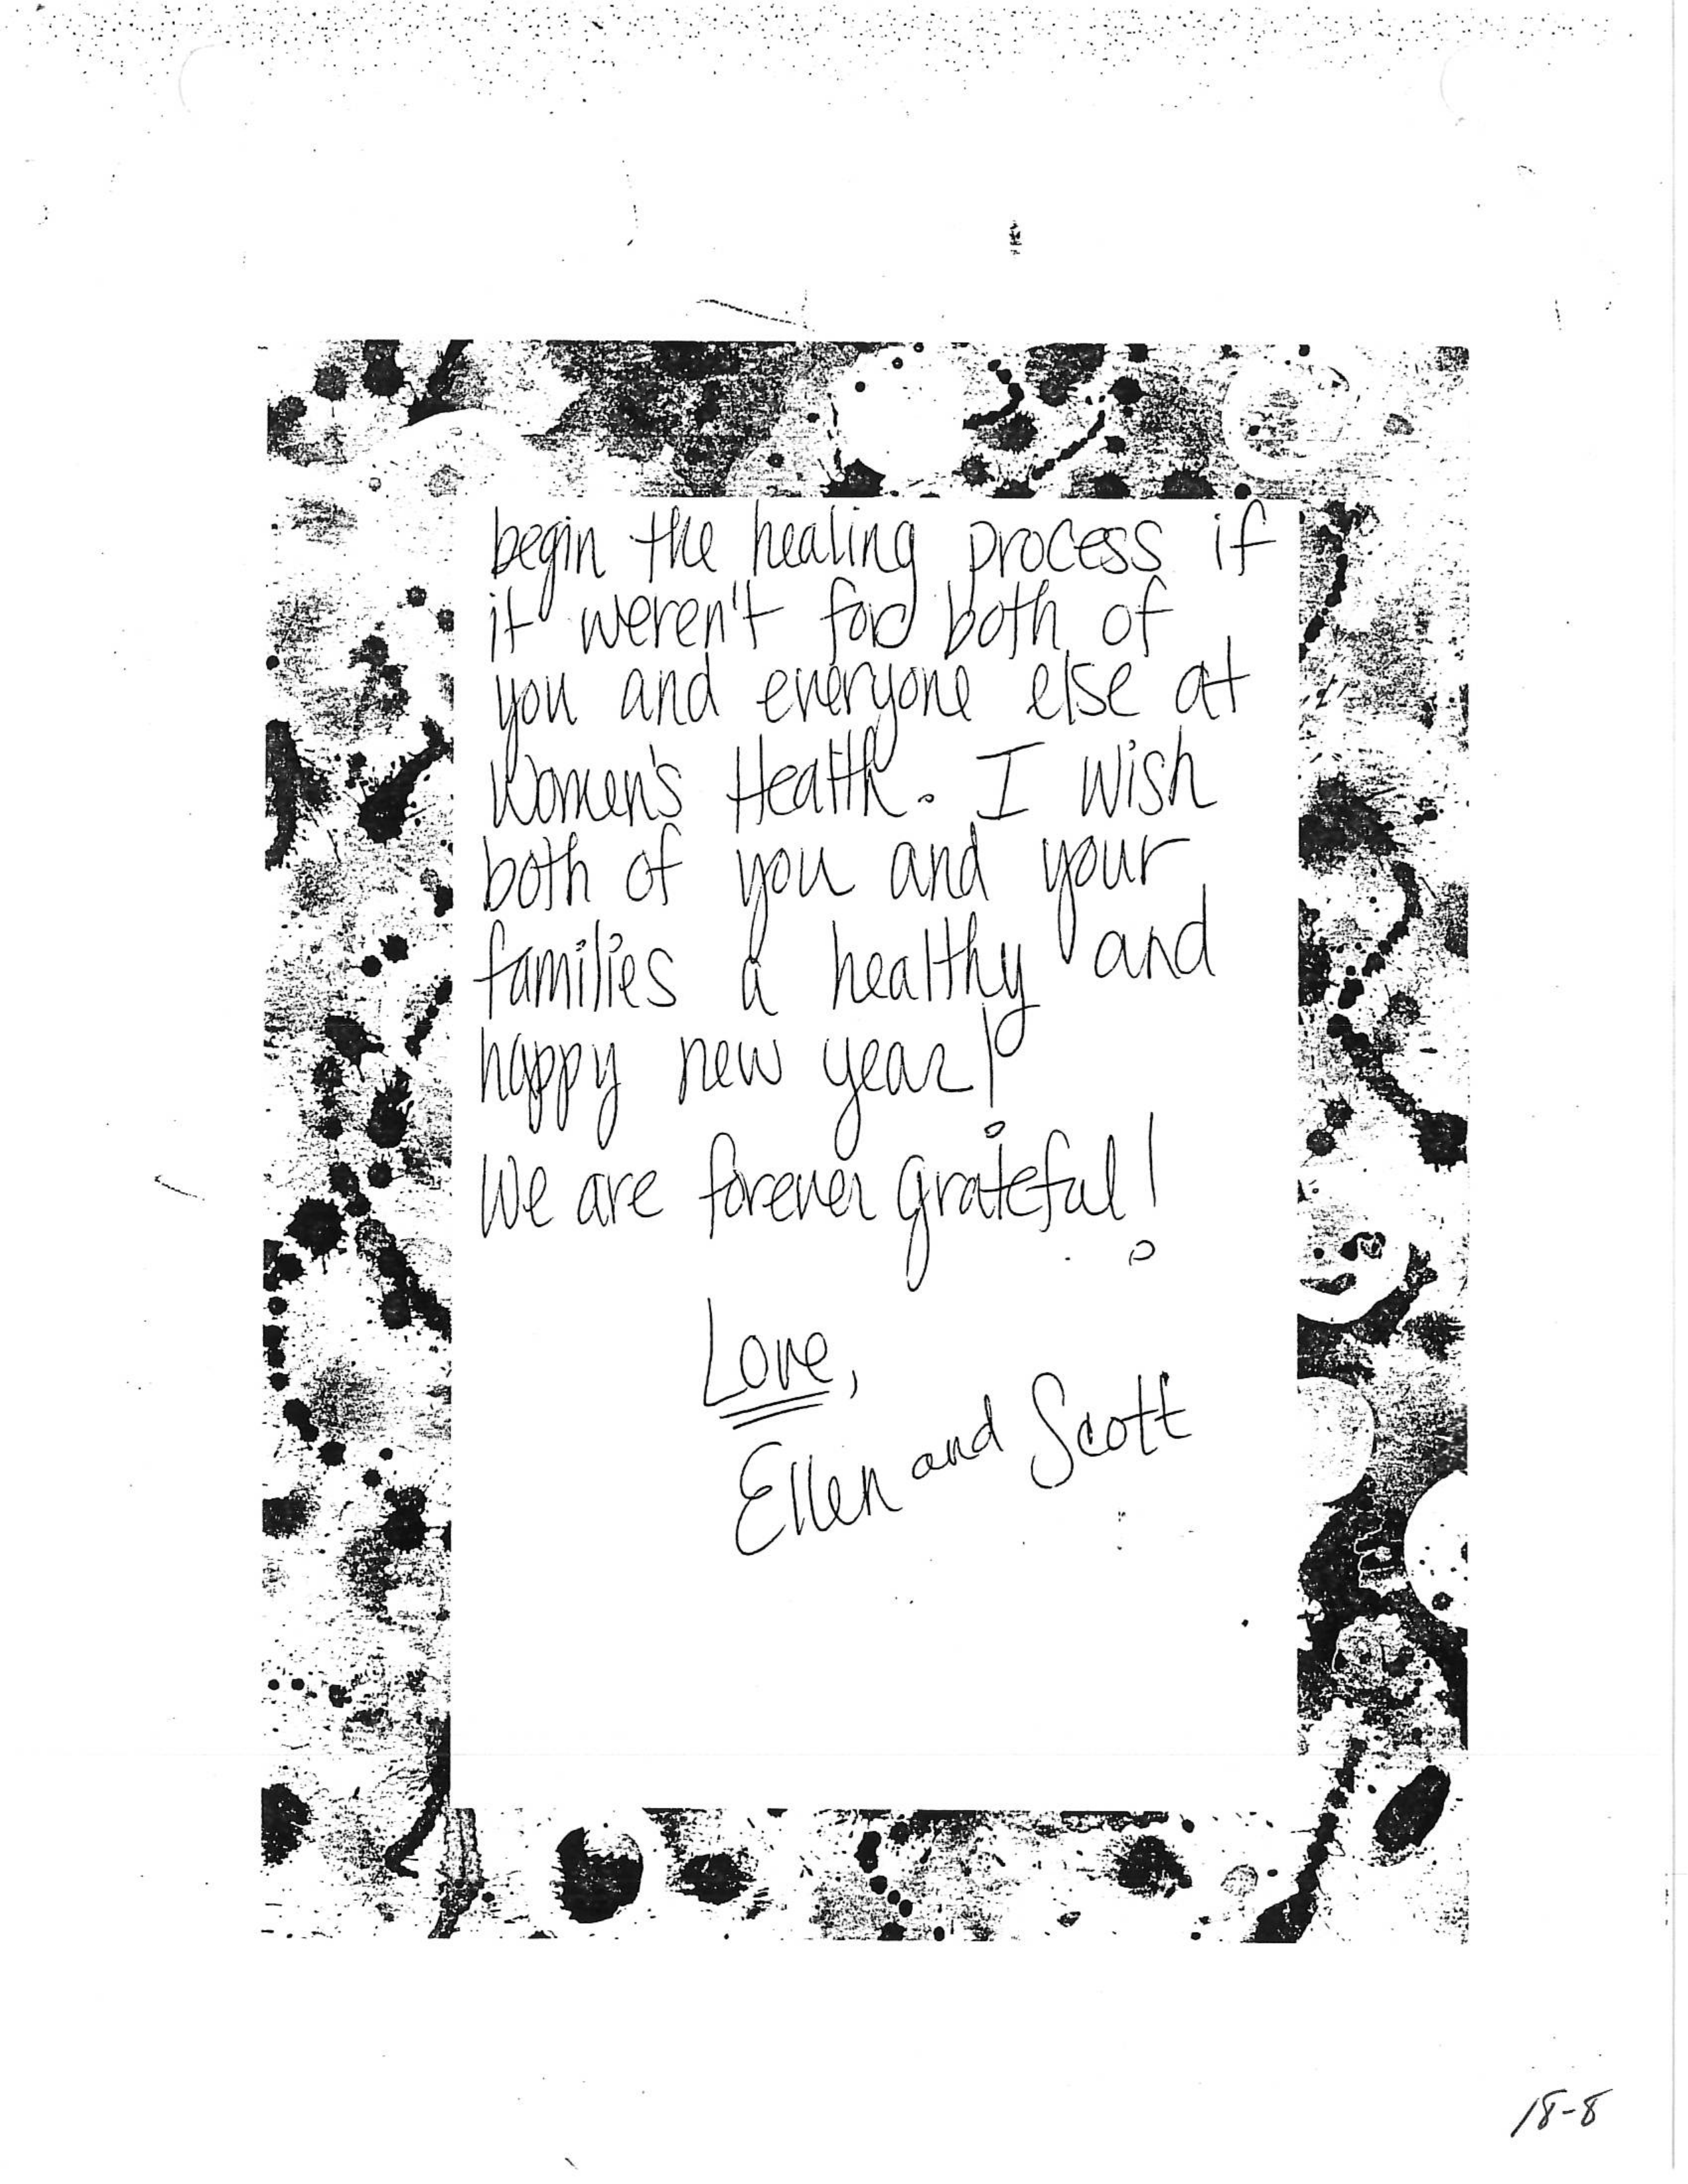 begin the healing process if
it weren't for both of
you and everyone else at
Women's Health. I wish
both of you and your
families a healthy and
happy new year!
We are forever grateful!
Love,
Ellen and Scott
18-8